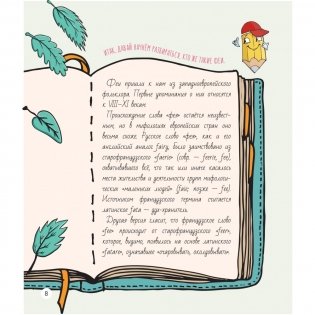 ИТАК, ДАВАЙ НАЧНЁМ РАЗБИРАТЬСЯ, КТО ЖЕ ТАКИЕ ФЕИ.
Феи пришли к нам из западноевропейского
фольклора. Первые упоминания о них относятся
к VIII–XI векам.
Происхождение слова «фея» остаётся неизвест-
ным, но в мифологиях европейских стран оно
весьма схоже. Русское слово «фея», как и его
английский аналог fairy, было заимствовано из
старофранцузского «faerie» (совр. – feerie, fee),
охватывавшего всё, что так или иначе касалось
места жительства и деятельности групп мифологи-
ческих «маленьких людей» (faie, позже – fee).
Источником французского термина считается
латинское fata – дух-хранитель.
Другая версия гласит, что французское слово
«fee» происходит от старофранцузского «feer»,
которое, видимо, появилось на основе латинского
«fatare», означавшее «очаровывать, околдовывать».
8